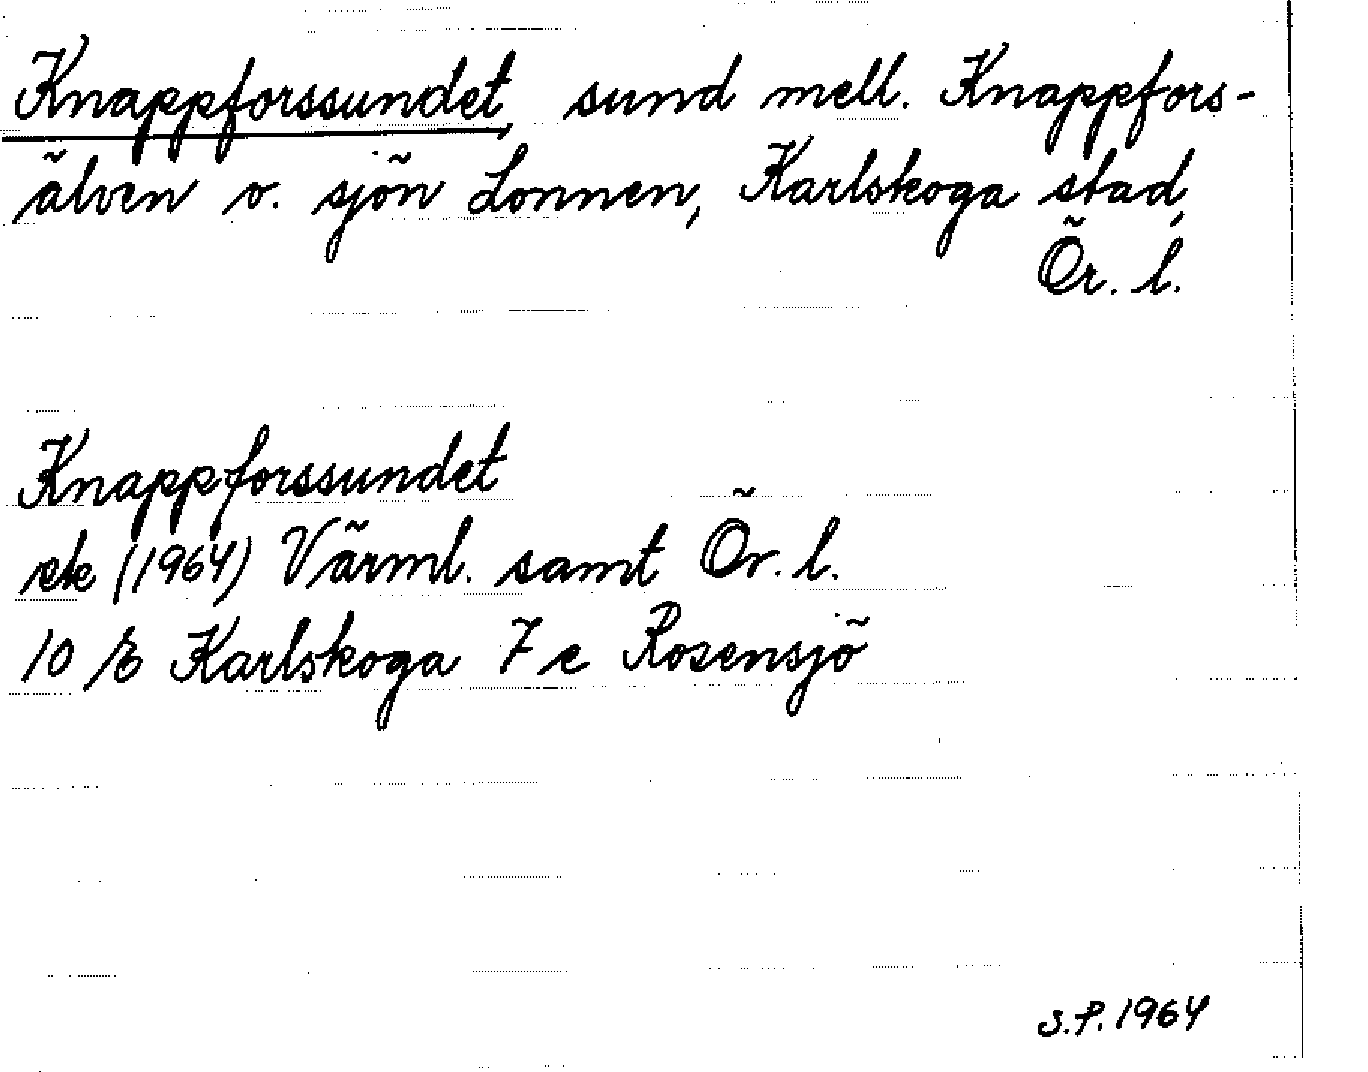 Knappforssundet, sund mell. Knappfors-
älven o. sjön Lonnen, Karlskoga stad,
Ör. l.
Knappforssundet
ek (1964) Värml. samt Ör. l.
10 E Karlskoga 7 e Rosensjö
S.P. 1964